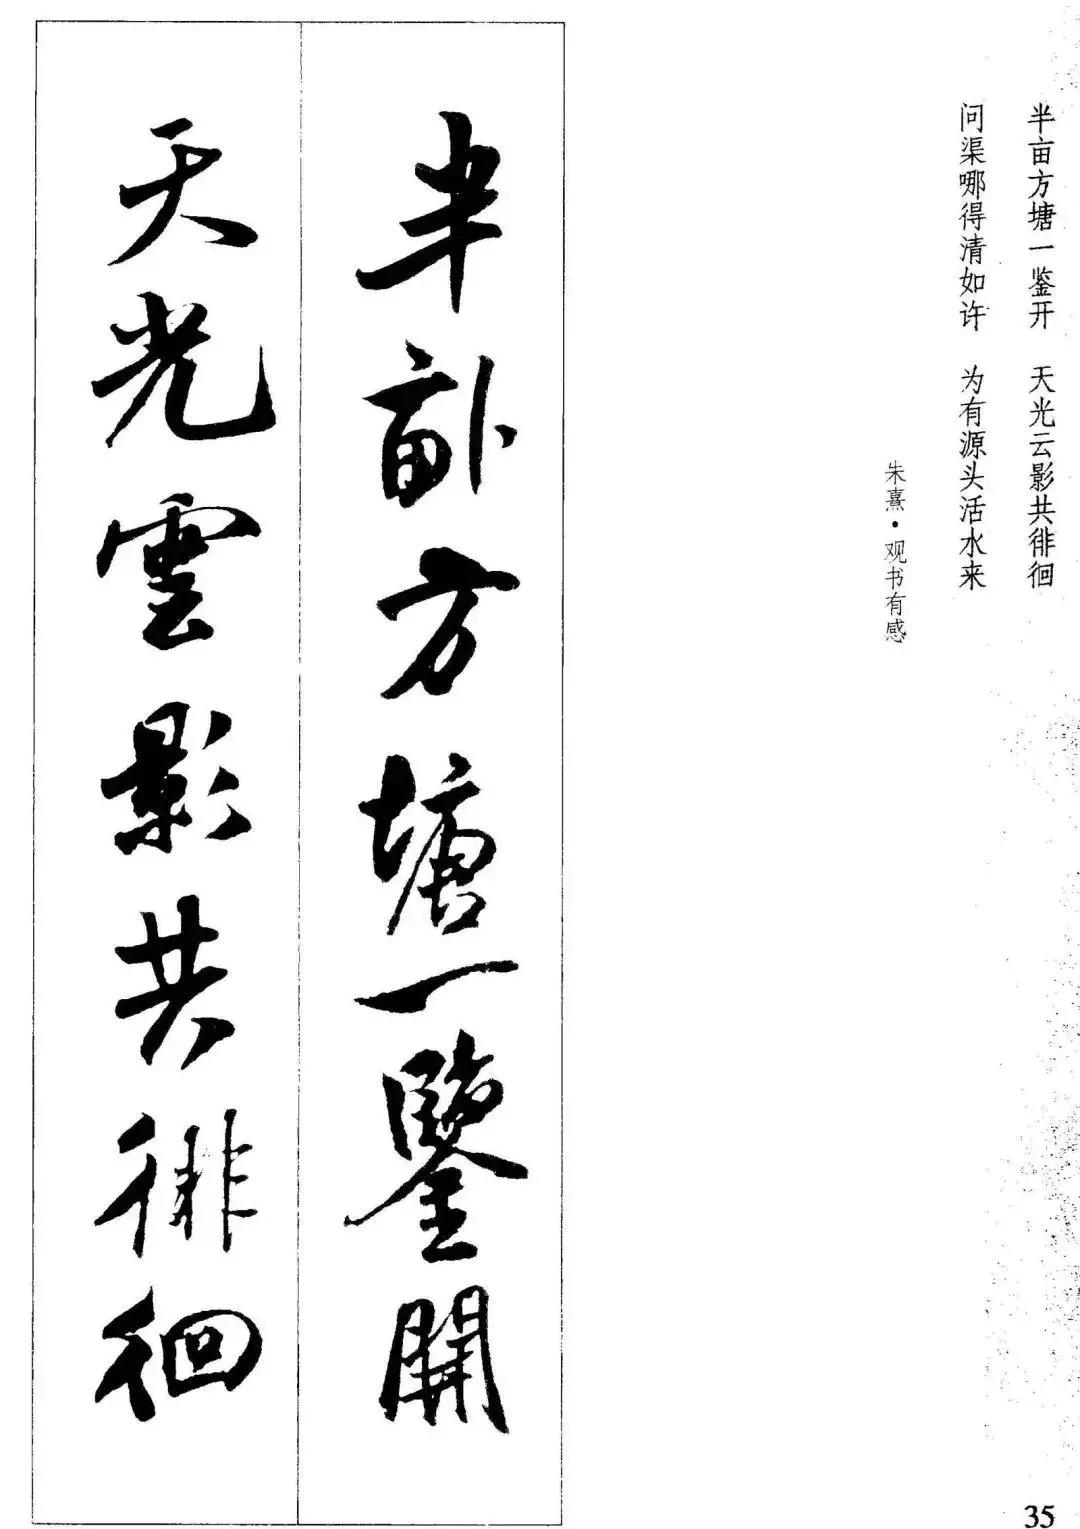 半亩方塘一鉴开 天光云影共徘徊
问渠哪得清如许 为有源头活水来
朱熹·观书有感
半畝方塘一鑒開
天光雲影共徘徊
35